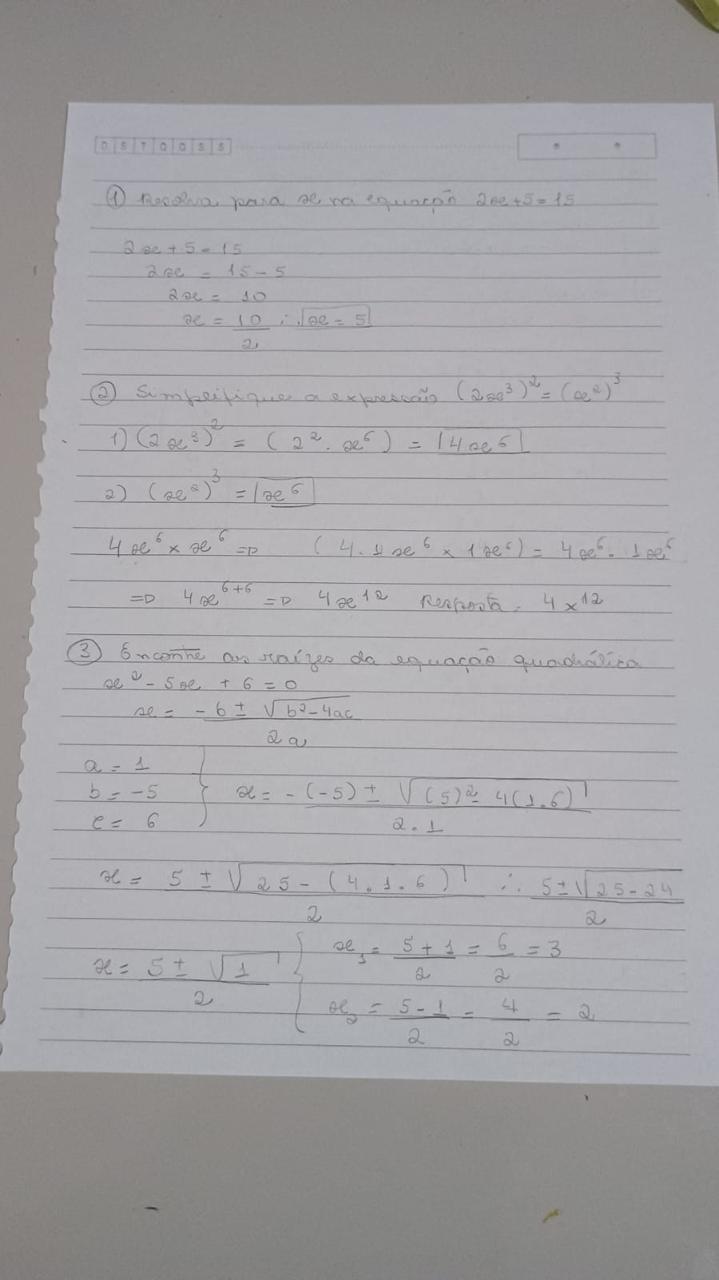 ① Resolva para x na equação 2x+5=15
2x+5=15
2x = 15-5
2x = 10
x = 10/2 ∴ x = 5
② Simplifique a expressão (2x³)² = (x²)³
1) (2x³)² = (2² . x⁶) = 4x⁶
2) (x²)³ = x⁶
4x⁶ × x⁶ => (4.1x⁶ × 1x⁶) = 4x⁶ . 1x⁶
=> 4x⁶⁺⁶ => 4x¹² Resposta. 4x¹²
③ Encontre as raízes da equação quadrática
x² - 5x + 6 = 0
x = -b ± √(b²-4ac) / 2a
a = 1
b = -5
c = 6
x = -(-5) ± √((5)² - 4(1.6)) / 2.1
x = 5 ± √(25 - (4.1.6)) / 2 ∴ 5±√(25-24) / 2
x = 5 ± √1 / 2
x₁ = 5+1/2 = 6/2 = 3
x₂ = 5-1/2 = 4/2 = 2